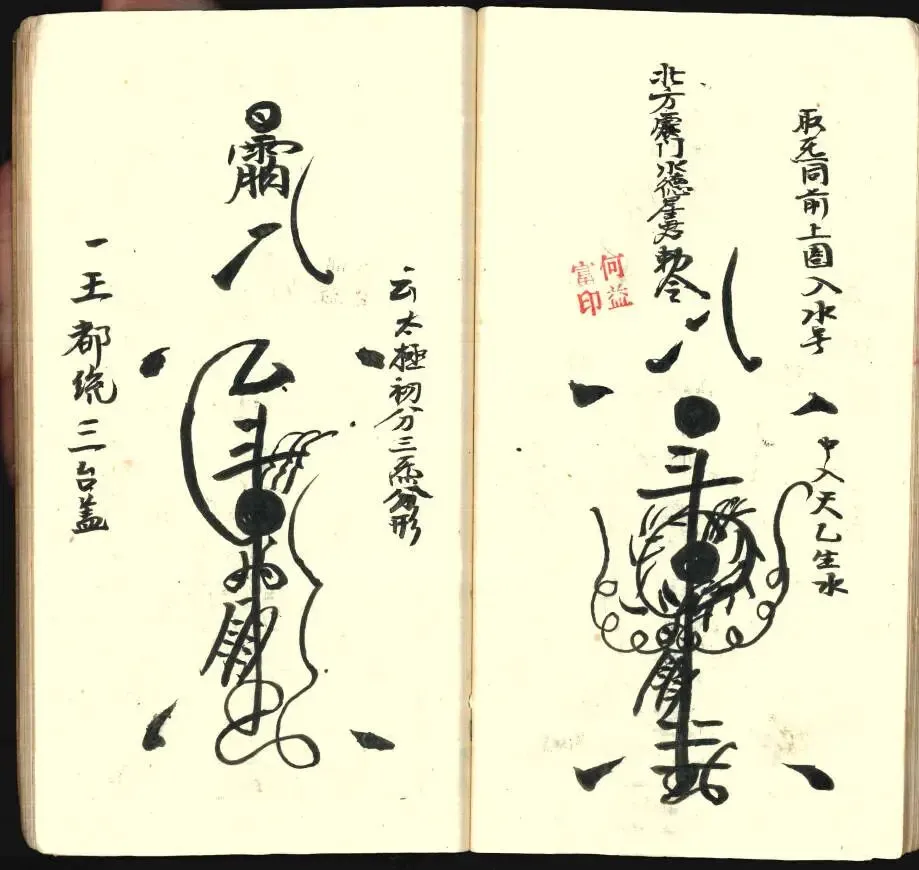 取炁同前上圈入水号
中入天乙生水
北方门水德星君勅令
何益富印
斗
云太極初分三炁分形
乙
斗
一王都统三台盖